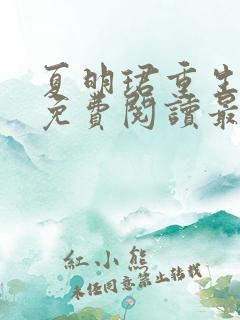 夏明珺重生
免費閱讀最
紅小熊
未經同意禁止轉載